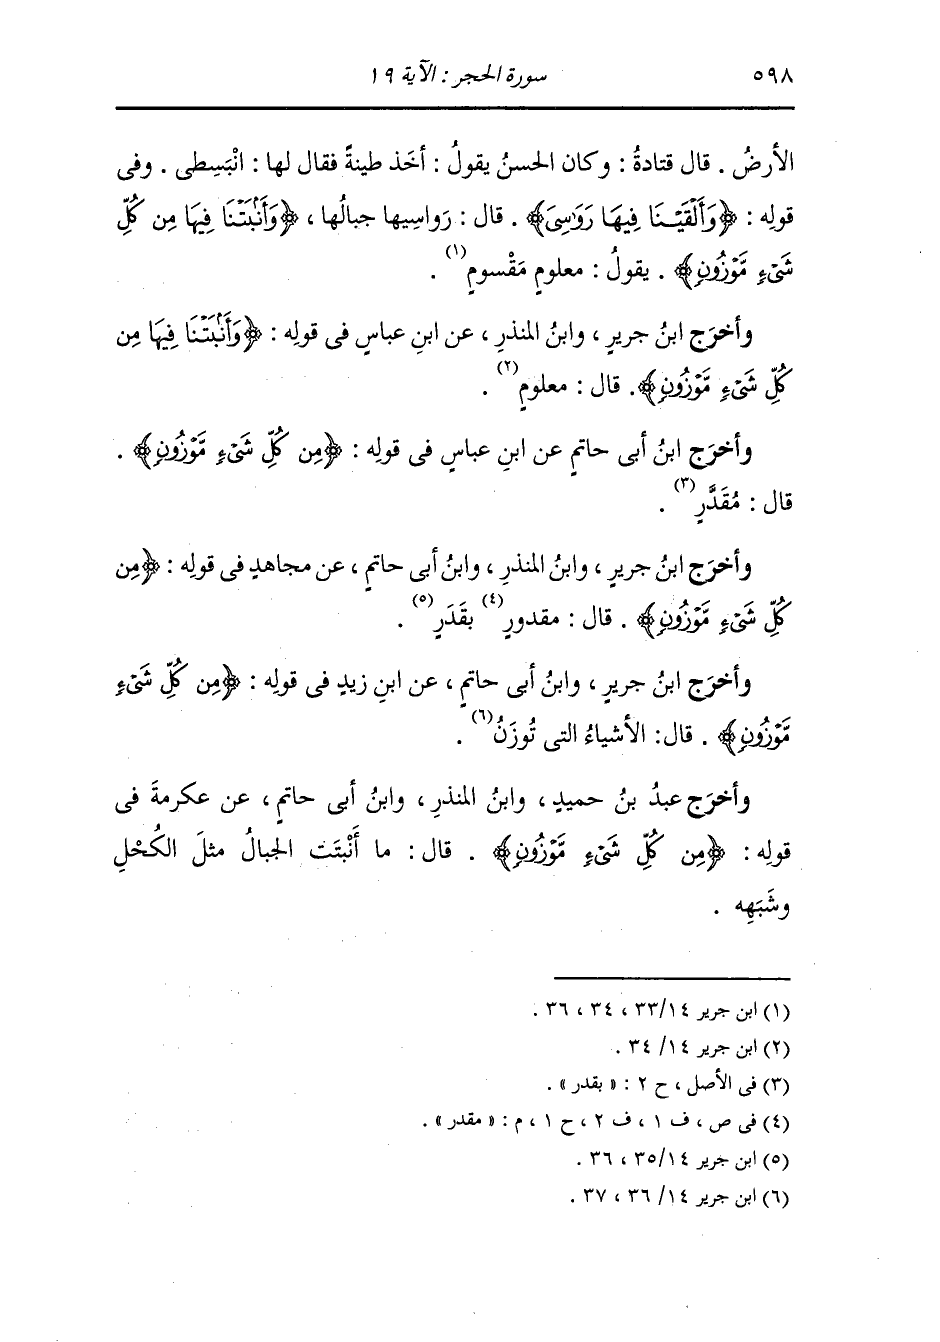 ٥٩٨ سورة الحجر : الآية ١٩
الأرضُ . قال قتادةُ : وكان الحسنُ يقولُ : أخَذ طينةً فقال لها : انْبَسِطى . وفى
قولِه : ﴿وَأَلْقَيْنَا فِيهَا رَوَٰسِىَ﴾ . قال : رَواسِيها جبالُها ، ﴿وَأَنۢبَتْنَا فِيهَا مِن كُلِّ
شَىْءٍ مَّوْزُونٍ﴾ . يقولُ : معلومٍ مَقْسومٍ(١) .
وأخرَج ابنُ جريرٍ ، وابنُ المنذرِ ، عن ابنِ عباسٍ فى قولِه : ﴿وَأَنۢبَتْنَا فِيهَا مِن
كُلِّ شَىْءٍ مَّوْزُونٍ﴾. قال : معلومٍ(٢) .
وأخرَج ابنُ أبى حاتمٍ عن ابنِ عباسٍ فى قولِه : ﴿مِن كُلِّ شَىْءٍ مَّوْزُونٍ﴾ .
قال : مُقَدَّرٍ(٣) .
وأخرَج ابنُ جريرٍ ، وابنُ المنذرِ ، وابنُ أبى حاتمٍ ، عن مجاهدٍ فى قولِه : ﴿مِن
كُلِّ شَىْءٍ مَّوْزُونٍ﴾ . قال : مقدورٍ(٤) بقَدَرٍ(٥) .
وأخرَج ابنُ جريرٍ ، وابنُ أبى حاتمٍ ، عن ابنِ زيدٍ فى قولِه : ﴿مِن كُلِّ شَىْءٍ
مَّوْزُونٍ﴾ . قال: الأشياءُ التى تُوزَنُ(٦) .
وأخرَج عبدُ بنُ حميدٍ ، وابنُ المنذرِ ، وابنُ أبى حاتمٍ ، عن عكرمةَ فى
قولِه : ﴿مِن كُلِّ شَىْءٍ مَّوْزُونٍ﴾ . قال : ما أَنْبتَت الجبالُ مثلَ الكُحْلِ
وشَبَهِه .
(١) ابن جرير ١٤/٣٣ ، ٣٤ ، ٣٦ .
(٢) ابن جرير ١٤/ ٣٤ .
(٣) فى الأصل ، ح ٢ : « بقدر » .
(٤) فى ص ، ف ١ ، ف ٢ ، ح ١ ، م : « مقدر » .
(٥) ابن جرير ١٤/٣٥ ، ٣٦ .
(٦) ابن جرير ١٤/ ٣٦ ، ٣٧ .